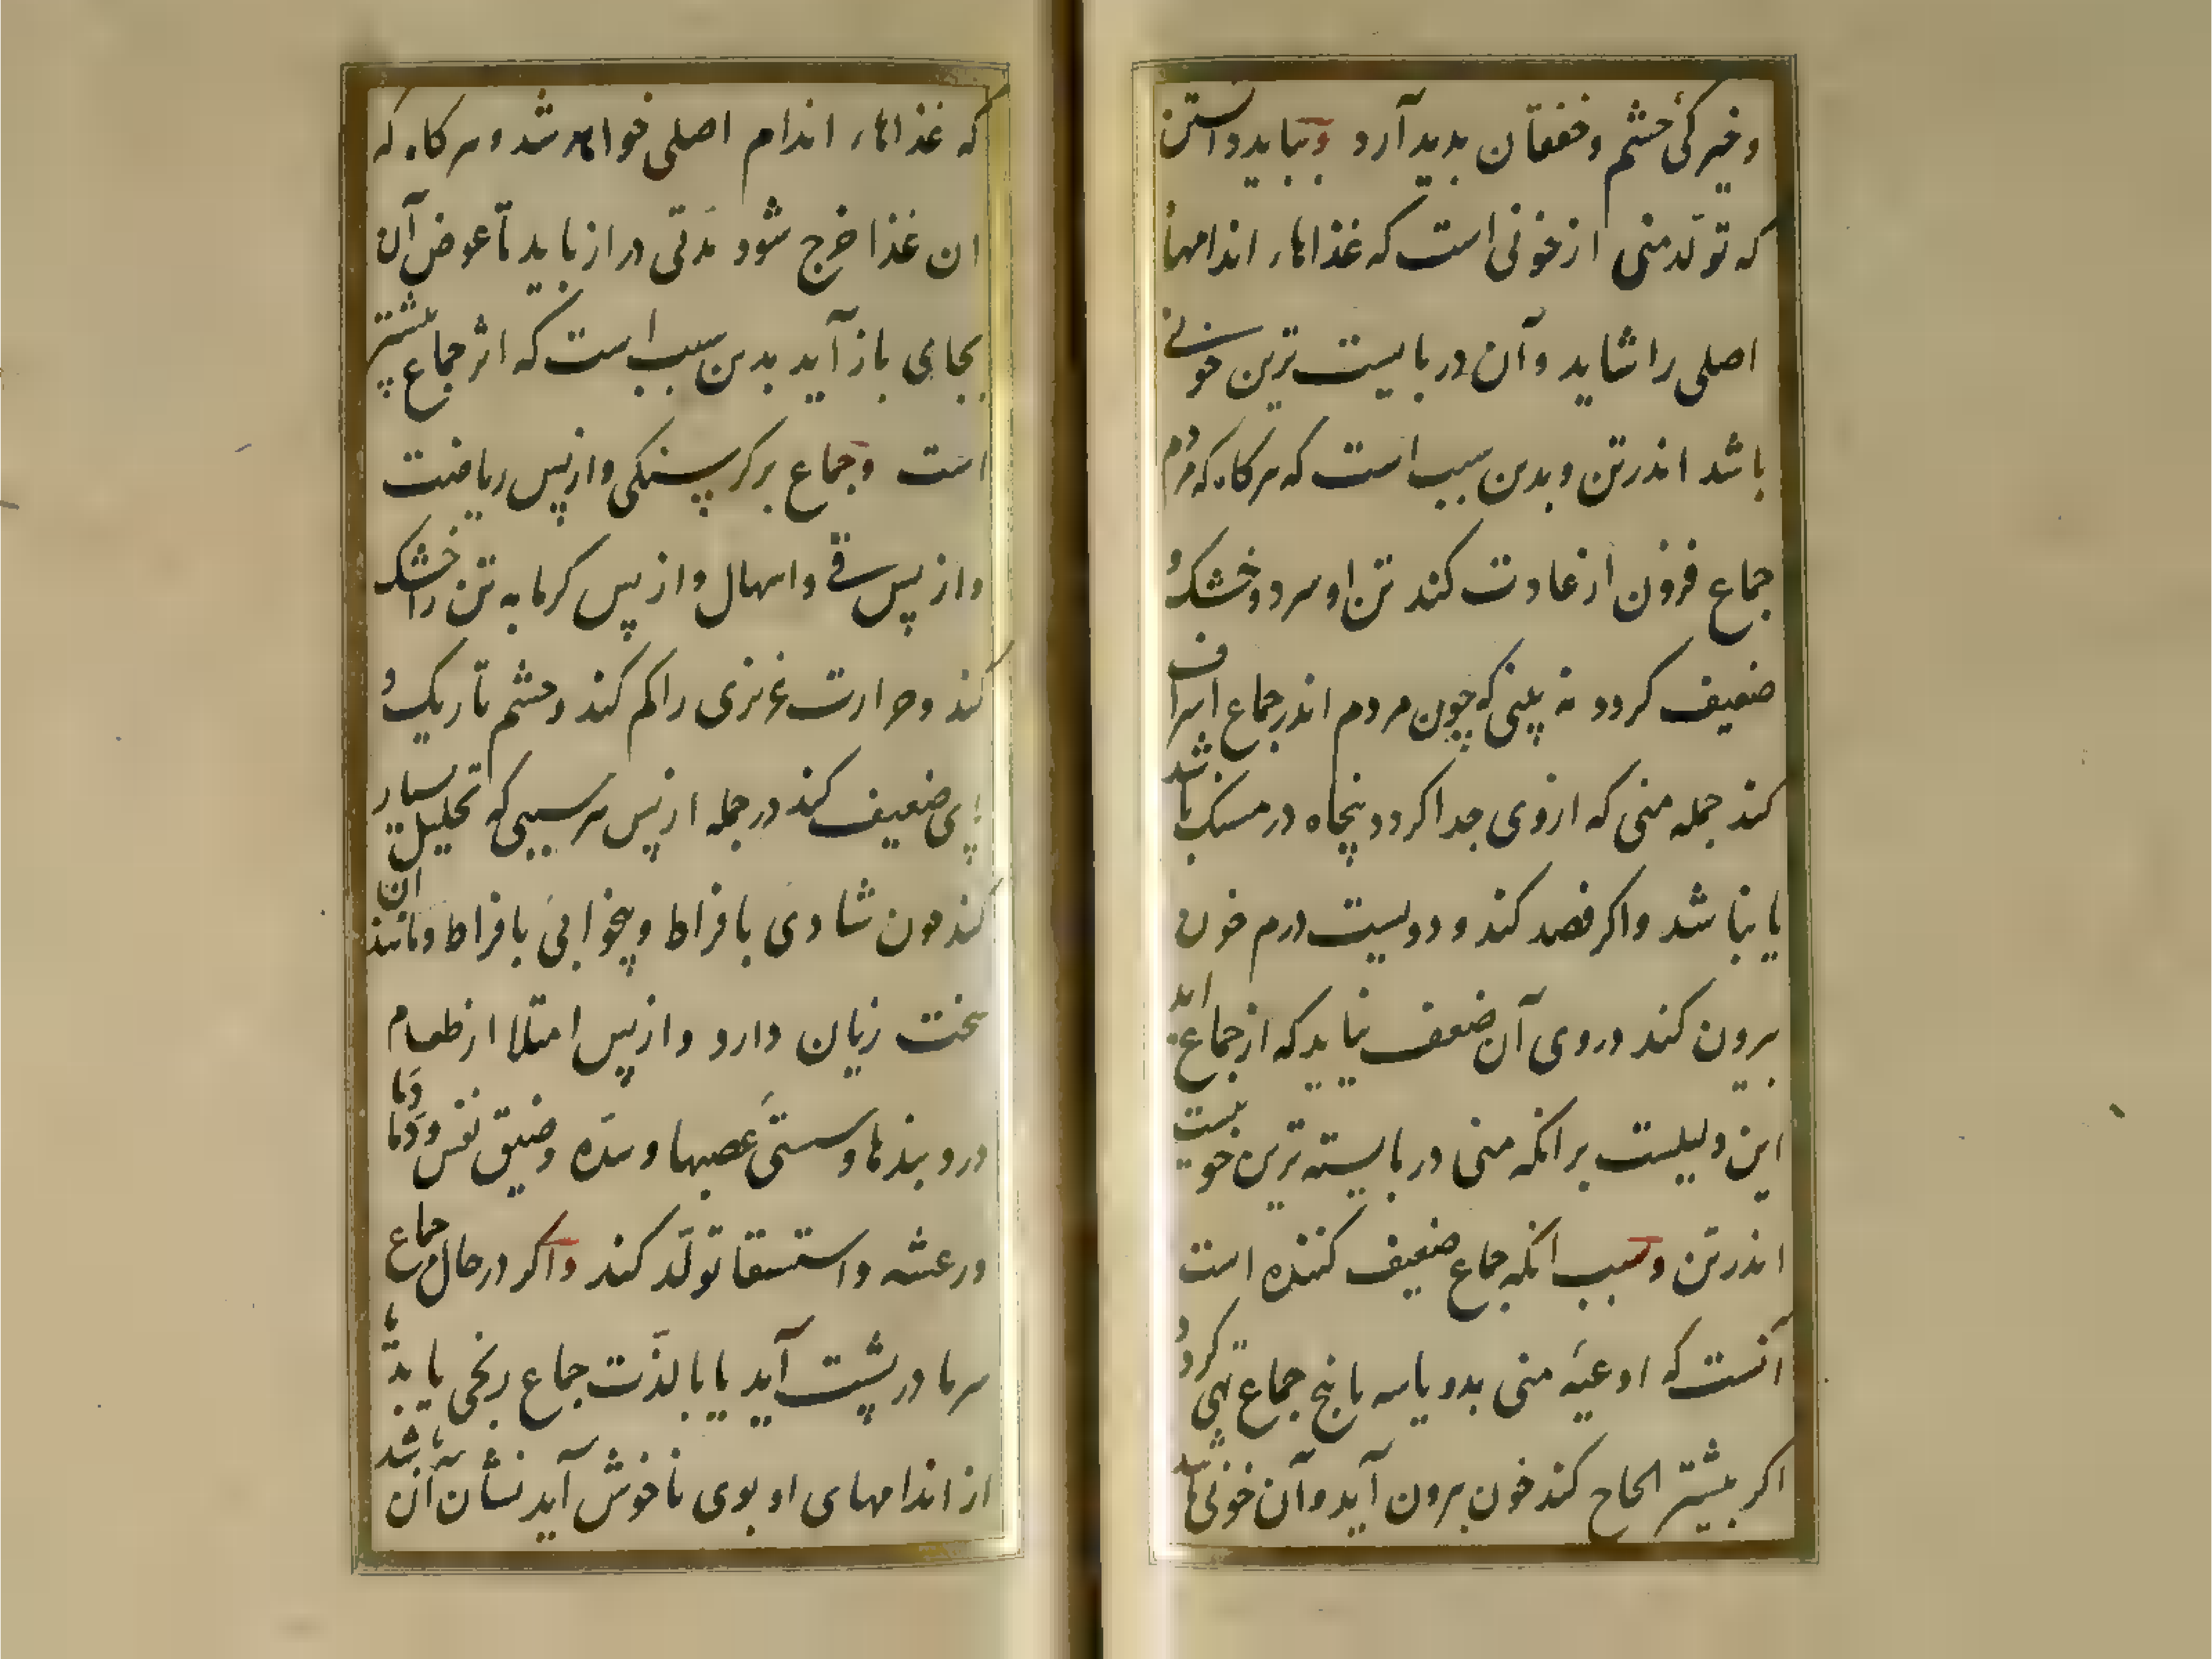 و خیرکیٔ چشم و خفقان بدید آرد و بباید دانستن
که تولّد منی از خونی است که غذاهاء اندامها
اصلی را شاید و آن دربایست ترین خونی
باشد اندر تن و بدین سبب است که هرکاه که مردم
جماع فزون از عادت کند تن او سرد و خشک و
ضعیف کردد نه بینی که چون مردم اندر جماع اسراف
کند جمله منی که از وی جدا کردد پنجاه درمسنک باشد
یا نباشد و اکر فصد کند و دویست درم خون
برون کند در وی آن ضعف نیاید که از جماع اید
این دلیلست برانکه منی دربایسته ترین خونیست
اندر تن و سبب انکه جماع ضعیف کننده است
آنست که اوعیهٔ منی بدو یا سه یا پنج جماع تهی کردد
اکر بیشتر الحاح کند خون برون آید و آن خونی باشد
که غذاهاء اندام اصلی خواهد شد و هرکاه که
ان غذا خرج شود مدّتی دراز باید تا عوض آن
بجای باز آید بدین سبب است که اثر جماع بیشتر
است و جماع بر کرسنکی و از پس ریاضت
و از پس قی و اسهال و از پس کرمابه تن را خشک
کند و حرارت غریزی را کم کند و چشم تاریک و
پی ضعیف کند در جمله از پس هر سببی که تحلیل بسیار
کند چون شادی بافراط و بیخوابی بافراط و مانند ان
سخت زیان دارد و از پس امتلا از طعام
درد بندها و سستی عصبها و سدّه و ضیق نفس و دَما
و رعشه و استسقا تولّد کند و اکر در حال جماع
سرما در پشت آید یا با لذّت جماع رنجی یابد یا
از اندامهای او بوی ناخوش آید نشان آن باشد